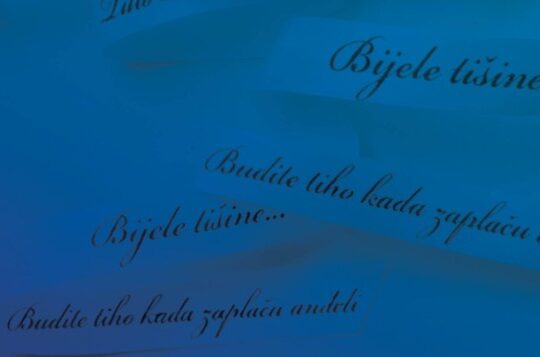 Bijele tišine
Budite tiho kada zaplaču
Bijele tišine...
Budite tiho kada zaplaču anđeli